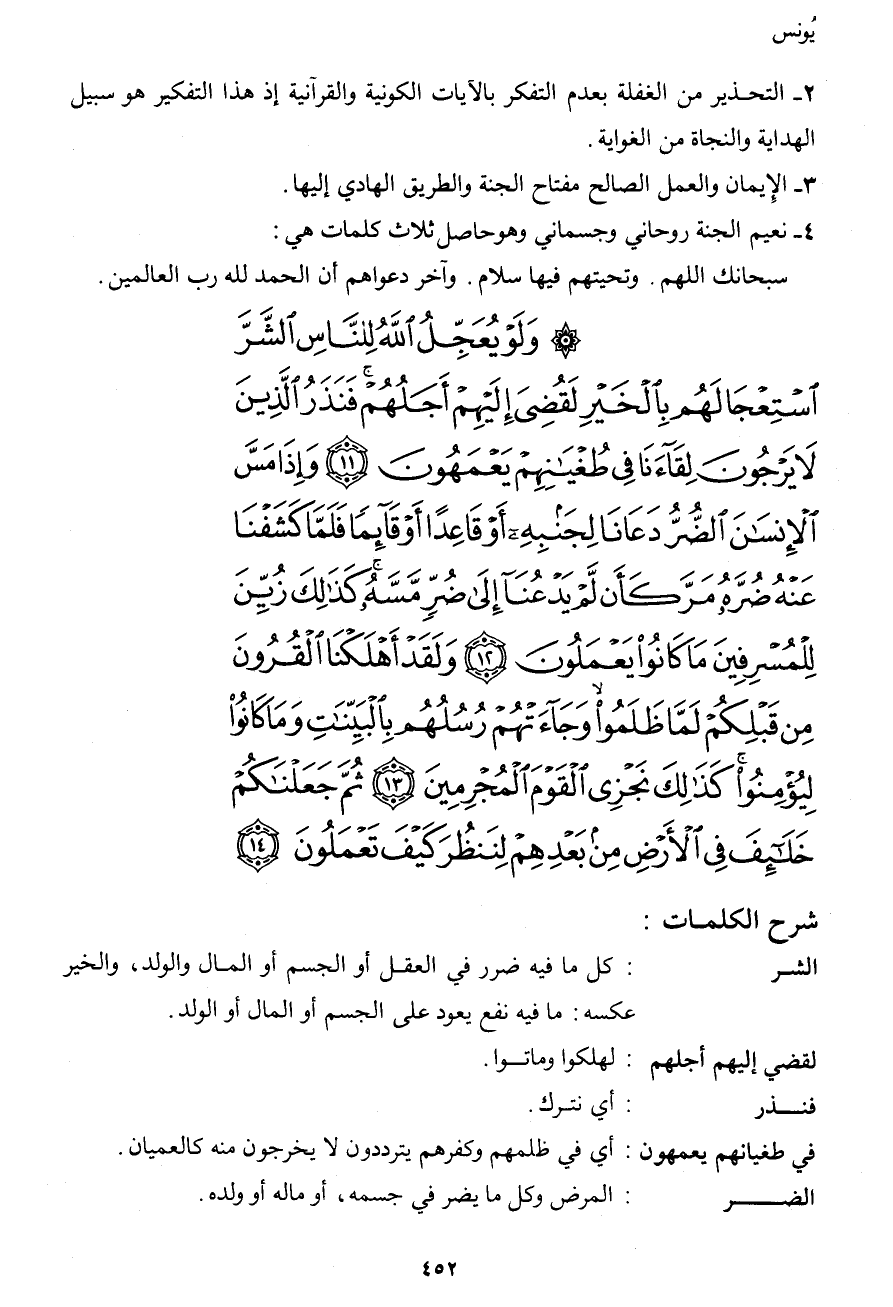 يُونس
٢ـ التحـذير من الغفلة بعدم التفكر بالآيات الكونية والقرآنية إذ هذا التفكير هو سبيل
الهداية والنجاة من الغواية .
٣ـ الإِيمان والعمل الصالح مفتاح الجنة والطريق الهادي إليها.
٤ـ نعيم الجنة روحاني وجسماني وهوحاصل ثلاث كلمات هي :
سبحانك اللهم . وتحيتهم فيها سلام . وآخر دعواهم أن الحمد لله رب العالمين .
۞ وَلَوْ يُعَجِّلُ ٱللَّهُ لِلنَّاسِ ٱلشَّرَّ
ٱسْتِعْجَالَهُم بِٱلْخَيْرِ لَقُضِىَ إِلَيْهِمْ أَجَلُهُمْۖ فَنَذَرُ ٱلَّذِينَ
لَا يَرْجُونَ لِقَآءَنَا فِى طُغْيَـٰنِهِمْ يَعْمَهُونَ ١١ وَإِذَا مَسَّ
ٱلْإِنسَـٰنَ ٱلضُّرُّ دَعَانَا لِجَنۢبِهِۦٓ أَوْ قَاعِدًا أَوْ قَآئِمًا فَلَمَّا كَشَفْنَا
عَنْهُ ضُرَّهُۥ مَرَّ كَأَن لَّمْ يَدْعُنَآ إِلَىٰ ضُرٍّ مَّسَّهُۥۚ كَذَٰلِكَ زُيِّنَ
لِلْمُسْرِفِينَ مَا كَانُوا۟ يَعْمَلُونَ ١٢ وَلَقَدْ أَهْلَكْنَا ٱلْقُرُونَ
مِن قَبْلِكُمْ لَمَّا ظَلَمُوا۟ۙ وَجَآءَتْهُمْ رُسُلُهُم بِٱلْبَيِّنَـٰتِ وَمَا كَانُوا۟
لِيُؤْمِنُوا۟ۚ كَذَٰلِكَ نَجْزِى ٱلْقَوْمَ ٱلْمُجْرِمِينَ ١٣ ثُمَّ جَعَلْنَـٰكُمْ
خَلَـٰٓئِفَ فِى ٱلْأَرْضِ مِنۢ بَعْدِهِمْ لِنَنظُرَ كَيْفَ تَعْمَلُونَ ١٤
شرح الكلمـات :
الشـر : كل ما فيه ضرر في العقـل أو الجسم أو المـال والولد، والخير
عكسه : ما فيه نفع يعود على الجسم أو المال أو الولد.
لقضي إليهم أجلهم : لهلكوا وماتـوا .
فنــذر : أي نتـرك .
في طغيانهم يعمهون : أي في ظلمهم وكفرهم يترددون لا يخرجون منه كالعميان .
الضــــر : المرض وكل ما يضر في جسمه، أو ماله أو ولده .
٤٥٢